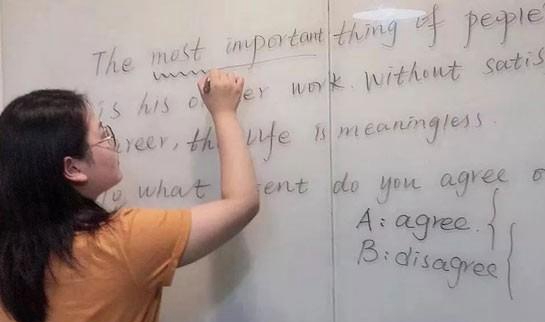 The most important thing of people
is his o er work. Without satis
reer, th life is meaningless.
To what ent do you agree o
A: agree.
B: disagree